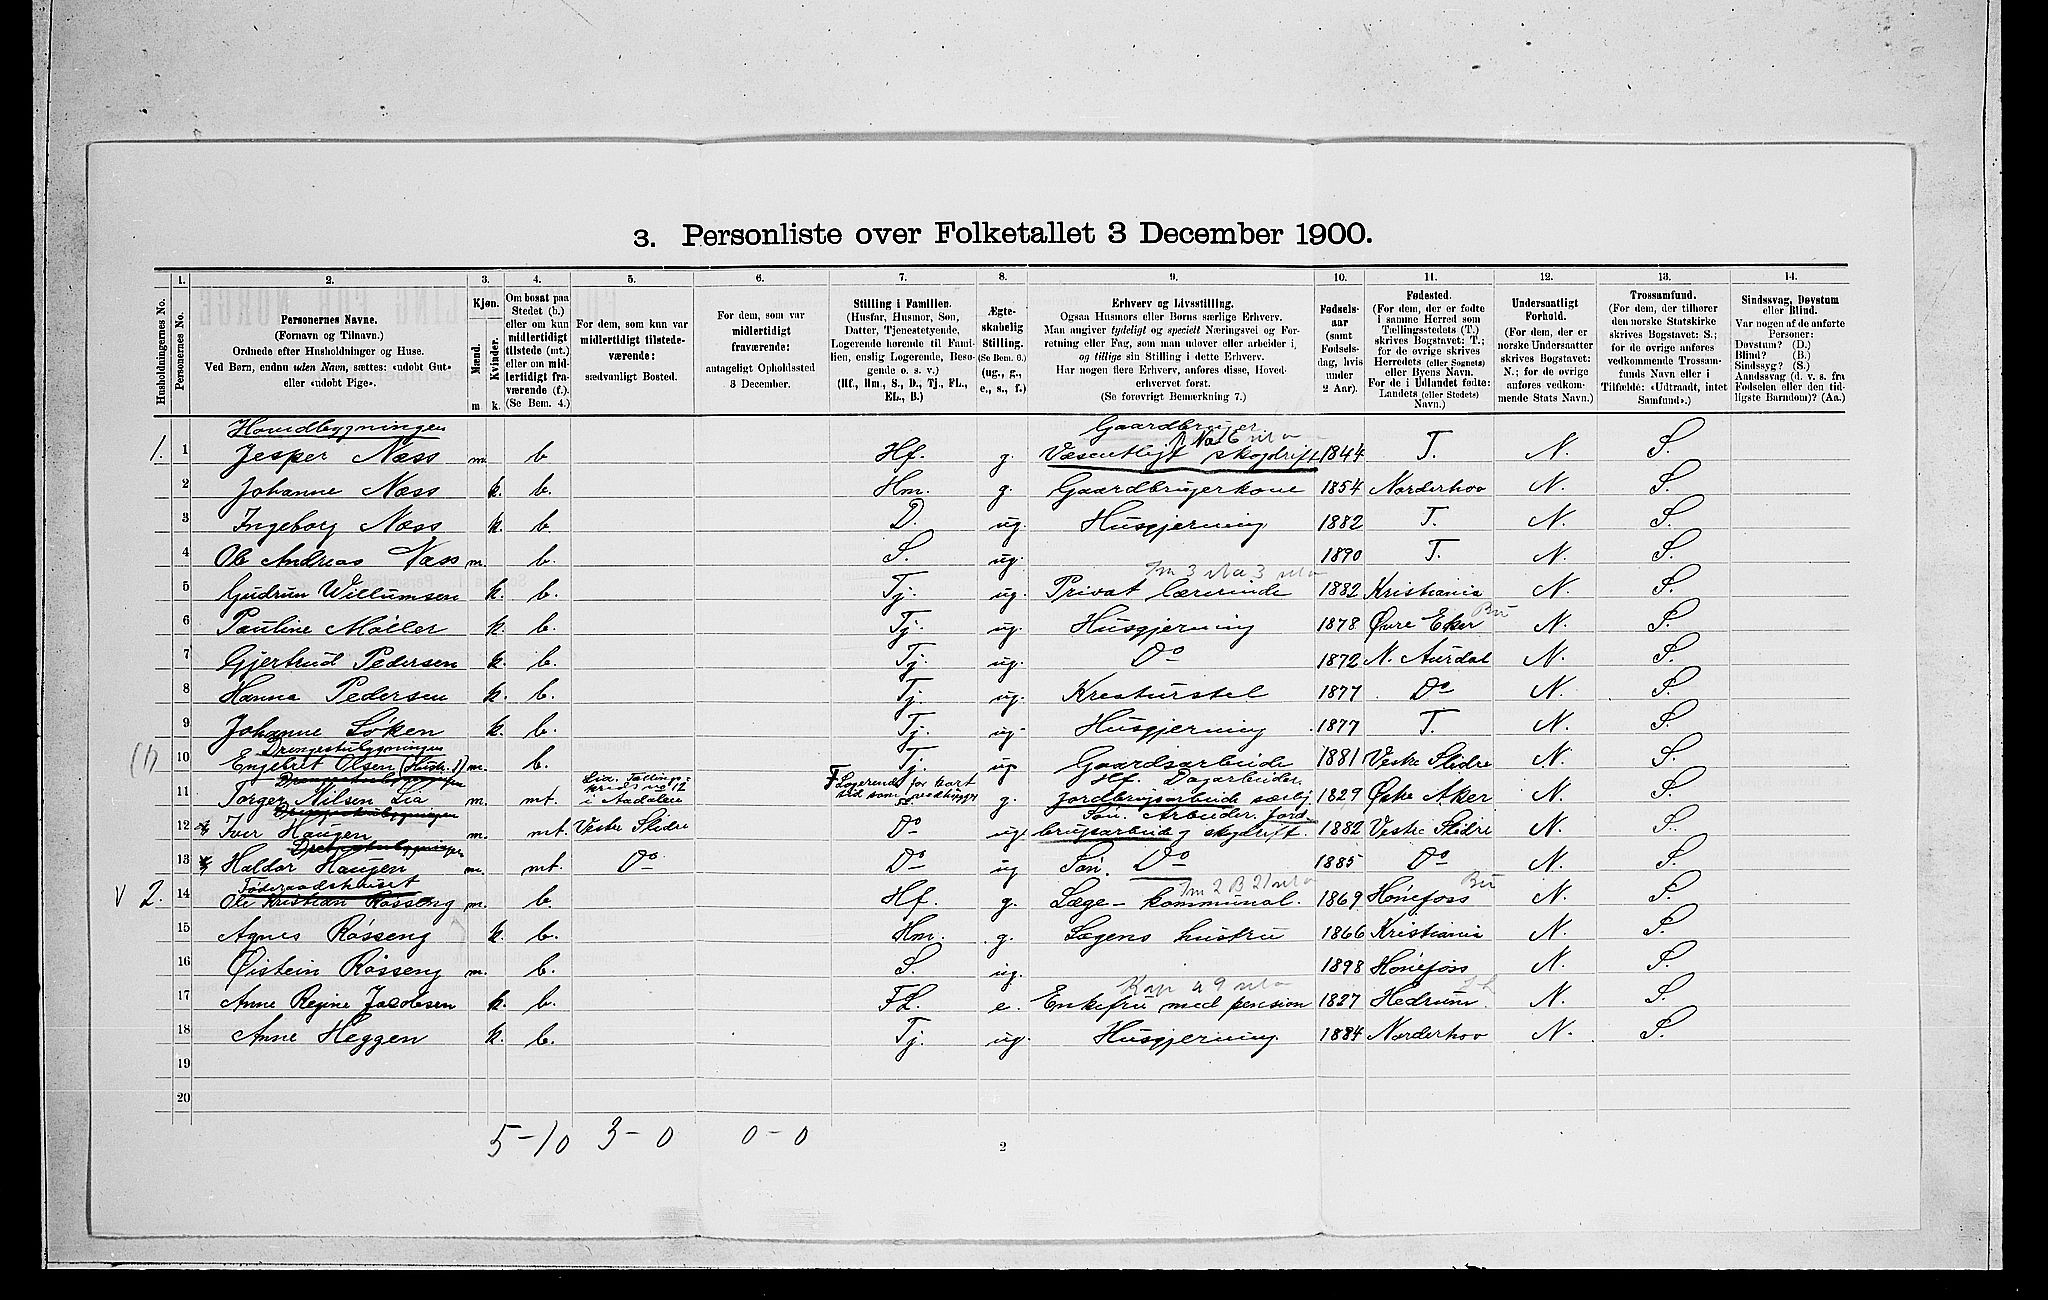 3. Personliste over Folketallet 3 December 1900.
1. 2. 3. 4. 5. 6. 7. 8. 9. 10. 11. 12. 13. 14.
Husholdningernes No.
Personernes No.
Personernes Navne.
(Fornavn og Tilnavn.)
Ordnede efter Husholdninger og Huse.
Ved Børn, endnu uden Navn, sættes: «udobt Gut»
eller «udobt Pige».
Kjøn.
Mænd. Kvinder.
m k.
Om bosat paa
Stedet (b.)
eller om kun
midlertidigt
tilstede (mt.)
eller om mid-
lertidigt fra-
værende (f.).
(Se Bem. 4.)
For dem, som kun var
midlertidigt tilstede-
værende:
sædvanligt Bosted.
For dem, som var
midlertidigt
fraværende:
antageligt Opholdssted
3 December.
Stilling i Familien.
(Husfar, Husmor, Søn,
Datter, Tjenestetyende,
Logerende hørende til Fami-
lien, enslig Logerende, Besø-
gende o. s. v.)
(Hf., Hm., S., D., Tj., FL.,
EL., B.)
Ægte-
skabelig
Stilling.
(Se Bem. 6.)
(ug., g.,
e., s., f.)
Erhverv og Livsstilling.
Ogsaa Husmors eller Børns særlige Erhverv.
Man angiver tydeligt og specielt Næringsvei og For-
retning eller Fag, som man udøver eller arbeider i,
og tillige sin Stilling i dette Erhverv.
Har nogen flere Erhverv, anføres disse, Hoved-
erhvervet først.
(Se forøvrigt Bemærkning 7.)
Fødsels-
aar
(samt
Fødsels-
dag, hvis
under
2 Aar).
Fødested.
(For dem, der er fødte
i samme Herred som
Tællingsstedets (T.)
skrives Bogstavet: T.;
for de øvrige skrives
Herredets (eller Sognets)
eller Byens Navn.
For de i Udlandet fødte:
Landets (eller Stedets)
Navn.)
Undersaatligt
Forhold.
(For dem, der er
norske Undersaatter
skrives Bogstavet:
N.; for de øvrige
anføres vedkom-
mende Stats Navn.)
Trossamfund.
(For dem, der tilhører
den norske Statskirke
skrives Bogstavet: S.;
for de øvrige anføres
vedkommende Trossam-
funds Navn eller i
Tilfælde: «Udtraadt, intet
Samfund».)
Sindssvag, Døvstum
eller Blind.
Var nogen af de anførte
Personer:
Døvstum? (D.)
Blind? (B.)
Sindssyg? (S.)
Aandssvag (d. v. s. fra
Fødselen eller den tid-
ligste Barndom)? (Aa.)
Hovedbygningen Gaardbruger
1. 1 Jesper Næss m. b. Hf. g. Væsentligt skogdrift 1844 T. N. S.
2 Johanne Næss k. b. Hm. g. Gaardbrugerkone 1854 Norderhov N. S.
3 Ingeborg Næss k. b. D. ug. Husgjerning 1882 T. N. S.
4 Ole Andreas Næss m. b. S. ug. 1890 T. N. S.
5 Gudrun Willumsen k. b. Tj. ug. Privat lærerinde 1882 Kristiania N. S.
6 Pauline Møller k. b. Tj. ug. Husgjerning 1878 Øvre Eker Bu N. S.
7 Gjertrud Pedersen k. b. Tj. ug. Do 1872 N. Aurdal N. S.
8 Hanna Pedersen k. b. Tj. ug. Kreaturstel 1877 Do N. S.
9 Johanne Søken k. b. Tj. ug. Husgjerning 1877 T. N. S.
Drengestubygningen
(1) 10 Engebret Olsen (Hush. 1) m. b. Tj. ug. Gaardsarbeide 1881 Vestre Slidre N. S.
Drengestubygningen i Aadalen Logerende for kort Hf. Dagarbeider
11 Torger Nilsen Lia m. mt. tid som vedhugger g. Jordbrugsarbeide særlig 1829 Østre Aker N. S.
Drengestubygningen Søn. Arbeider Jord-
12 Iver Haugen m. mt. Vestre Slidre Do ug. brugsarbeide og skogdrift. 1882 Vestre Slidre N. S.
Drengestubygningen
13 Haldor Haugen m. mt. Do Do ug Søn. Do 1885 Do N. S.
Føderaadshuset
v 2. 14 Ole Kristian Røsseng m. b. Hf. g. Læge - kommunal. 1869 Hønefoss Bu N. S.
15 Agnes Røsseng k. b. Hm. g. Lægens hustru 1866 Kristiania N. S.
16 Øistein Røsseng m. b. S. ug. 1898 Hønefoss N. S.
17 Anne Regine Jacobsen k. b. FL. e. Enkefru med pension 1827 Hedrum N. S.
18 Anne Heggen k. b. Tj. ug. Husgjerning 1884 Norderhov N. S.
19
20
5-10 3-0 0-0
2